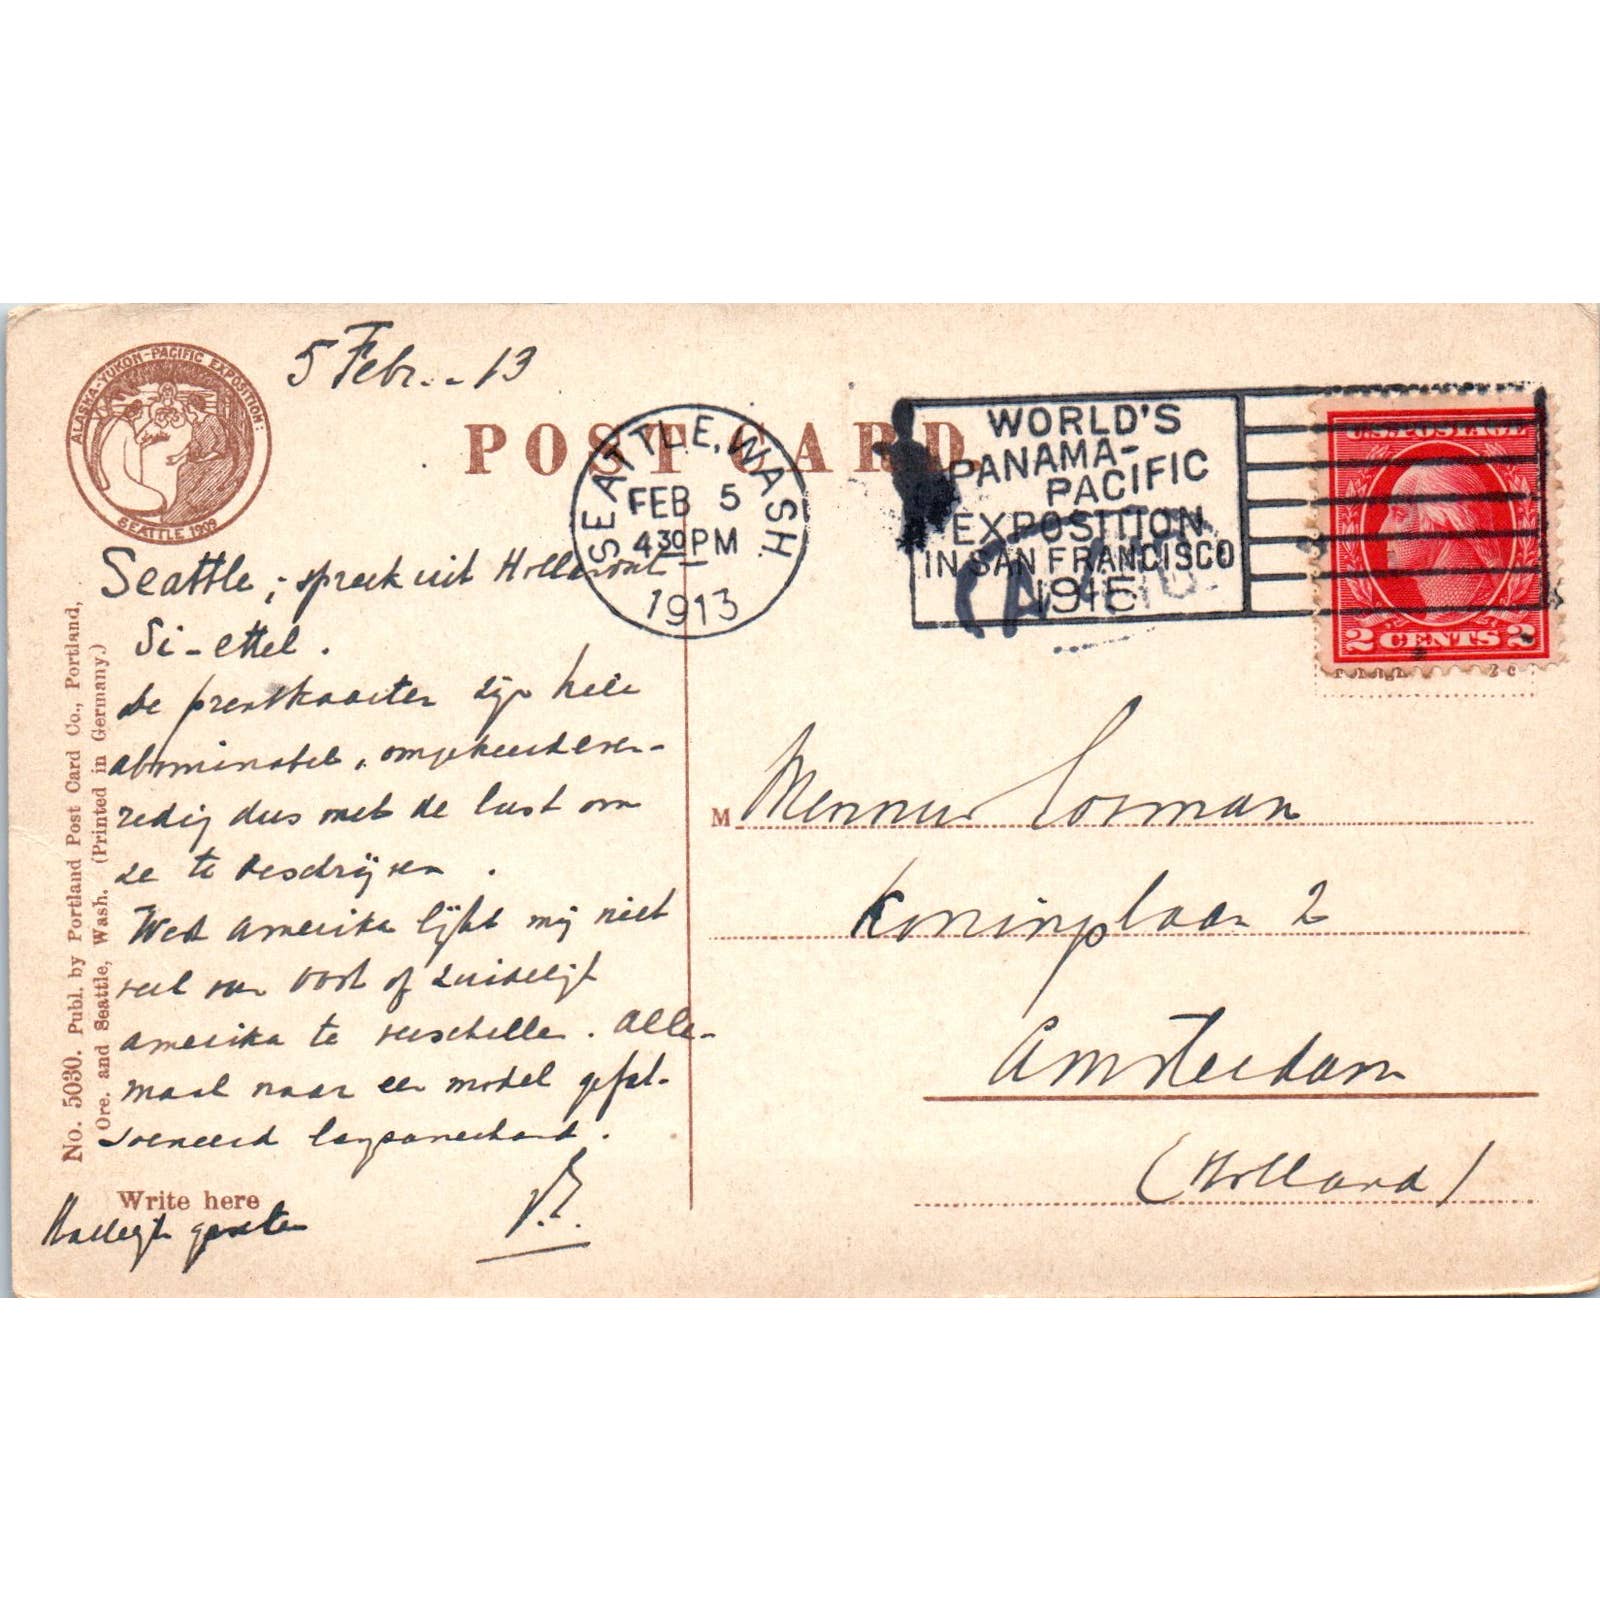 ALASKA-YUKON-PACIFIC EXPOSITION
SEATTLE 1909
5 Febr. - 13
POST CARD
SEATTLE, WASH
FEB 5
4 30 PM
1913
WORLD'S
PANAMA-
PACIFIC
EXPOSITION
IN SAN FRANCISCO
1915
U.S. POSTAGE
2 CENTS 2
Seattle; spreek uit Hollands
Si-ettel.
De prentkaarten zijn hele
abominabel, omgekeerd even-
redig dus met de lust om
ze te beschrijven.
West Amerika lijkt mij niet
veel van Oost of Zuidelijk
Amerika te verschillen. Alle-
maal naar een model gefat-
soeneerd
Hartelijk groeten
No. 5030. Publ. by Portland Post Card Co., Portland,
Ore. and Seattle, Wash. (Printed in Germany.)
Write here
M
Koninginplaan 2
Amsterdam
(Holland)